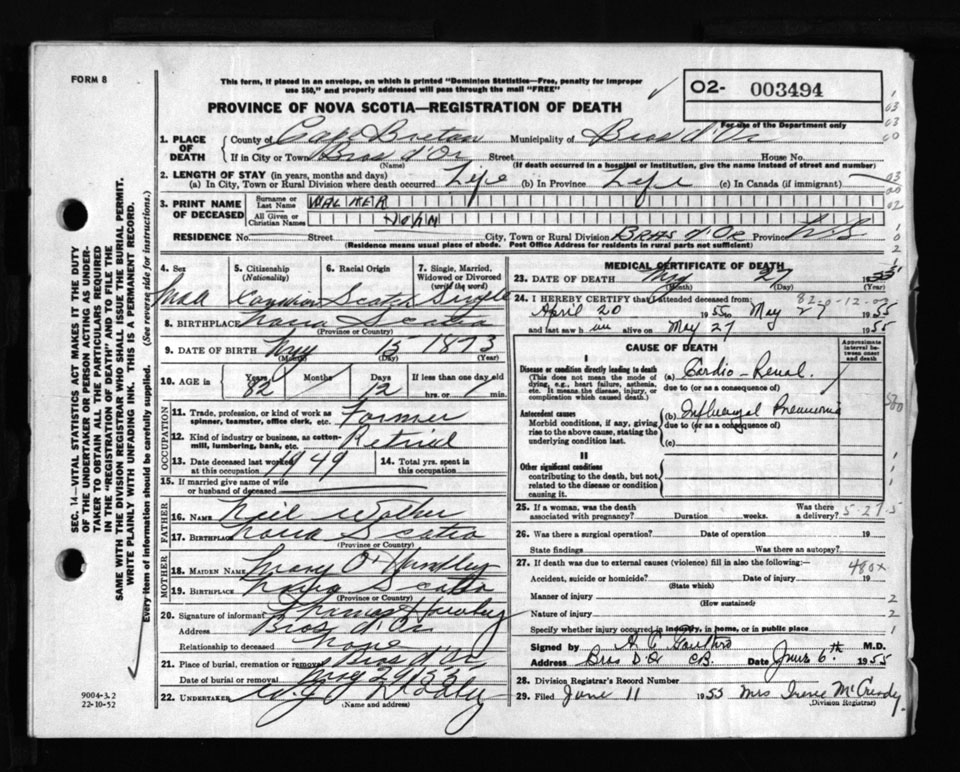 FORM 8
This form, if placed in an envelope, on which is printed "Dominion Statistics—Free, penalty for improper
use $50," and properly addressed will pass through the mail "FREE"
O2- 003494
For use of the Department only
PROVINCE OF NOVA SCOTIA—REGISTRATION OF DEATH
1. PLACE OF DEATH
County of Cape Breton Municipality of Bras d'Or
If in City or Town Bras d'Or Street House No.
(Name) (If death occurred in a hospital or institution, give the name instead of street and number)
2. LENGTH OF STAY (in years, months and days)
(a) In City, Town or Rural Division where death occurred Life (b) In Province Life (c) In Canada (if immigrant)
3. PRINT NAME OF DECEASED
Surname or Last Name WALKER
All Given or Christian Names JOHN
RESIDENCE No. Street City, Town or Rural Division BRAS d'OR Province N.S
(Residence means usual place of abode. Post Office Address for residents in rural parts not sufficient)
4. Sex Male
5. Citizenship (Nationality) Canadian
6. Racial Origin Scotch
7. Single, Married, Widowed or Divorced (write the word) Single
8. BIRTHPLACE Nova Scotia
(Province or Country)
9. DATE OF BIRTH May 15 1873
(Month) (Day) (Year)
10. AGE in Years 82 Months Days 12 If less than one day old hrs. or min.
OCCUPATION
11. Trade, profession, or kind of work as spinner, teamster, office clerk, etc. Farmer
12. Kind of industry or business, as cotton-mill, lumbering, bank, etc. Retired
13. Date deceased last worked at this occupation 1949
14. Total yrs. spent in this occupation
15. If married give name of wife or husband of deceased
FATHER
16. NAME Neil Walker
17. BIRTHPLACE Nova Scotia
(Province or Country)
MOTHER
18. MAIDEN NAME Mary
19. BIRTHPLACE Nova Scotia
(Province or Country)
20. Signature of informant Thomas
Address Bras d'Or
Relationship to deceased None
21. Place of burial, cremation or removal Bras d'Or
Date of burial or removal May 29 1955
22. UNDERTAKER W.J.
(Name and address)
9004-3.2
22-10-52
MEDICAL CERTIFICATE OF DEATH
23. DATE OF DEATH May 27 1955
(Month) (Day)
82-0-12-0
24. I HEREBY CERTIFY that I attended deceased from:
April 20 1955 to May 27 1955
and last saw h im alive on May 27 1955
CAUSE OF DEATH
Approximate interval between onset and death
I
Disease or condition directly leading to death
(This does not mean the mode of dying, e.g., heart failure, asthenia, etc. It means the disease, injury, or complication which caused death.)
(a) Cardio-Renal.
due to (or as a consequence of)
Antecedent causes
Morbid conditions, if any, giving rise to the above cause, stating the underlying condition last.
(b) Influenzal Pneumonia
due to (or as a consequence of)
(c)
II
Other significant conditions
contributing to the death, but not related to the disease or condition causing it.
25. If a woman, was the death associated with pregnancy? Duration weeks. Was there a delivery?
5-27-5
26. Was there a surgical operation? Date of operation 19
State findings Was there an autopsy?
27. If death was due to external causes (violence) fill in also the following:-
480x
Accident, suicide or homicide? Date of injury 19
(State which)
Manner of injury 2
(How sustained)
Nature of injury 2
Specify whether injury occurred in industry, in home, or in public place 1
Signed by M.D.
Address Bras D'Or CB. Date June 6th 1955
28. Division Registrar's Record Number
29. Filed June 11 1955 Mrs Irene McCready
(Division Registrar)
SEC. 14—VITAL STATISTICS ACT MAKES IT THE DUTY
OF THE UNDERTAKER OR PERSON ACTING AS UNDER-
TAKER TO OBTAIN ALL THE PARTICULARS REQUIRED
IN THE "REGISTRATION OF DEATH" AND TO FILE THE
SAME WITH THE DIVISION REGISTRAR WHO SHALL ISSUE THE BURIAL PERMIT.
WRITE PLAINLY WITH UNFADING INK. THIS IS A PERMANENT RECORD.
Every item of information should be carefully supplied. (See reverse side for instructions.)